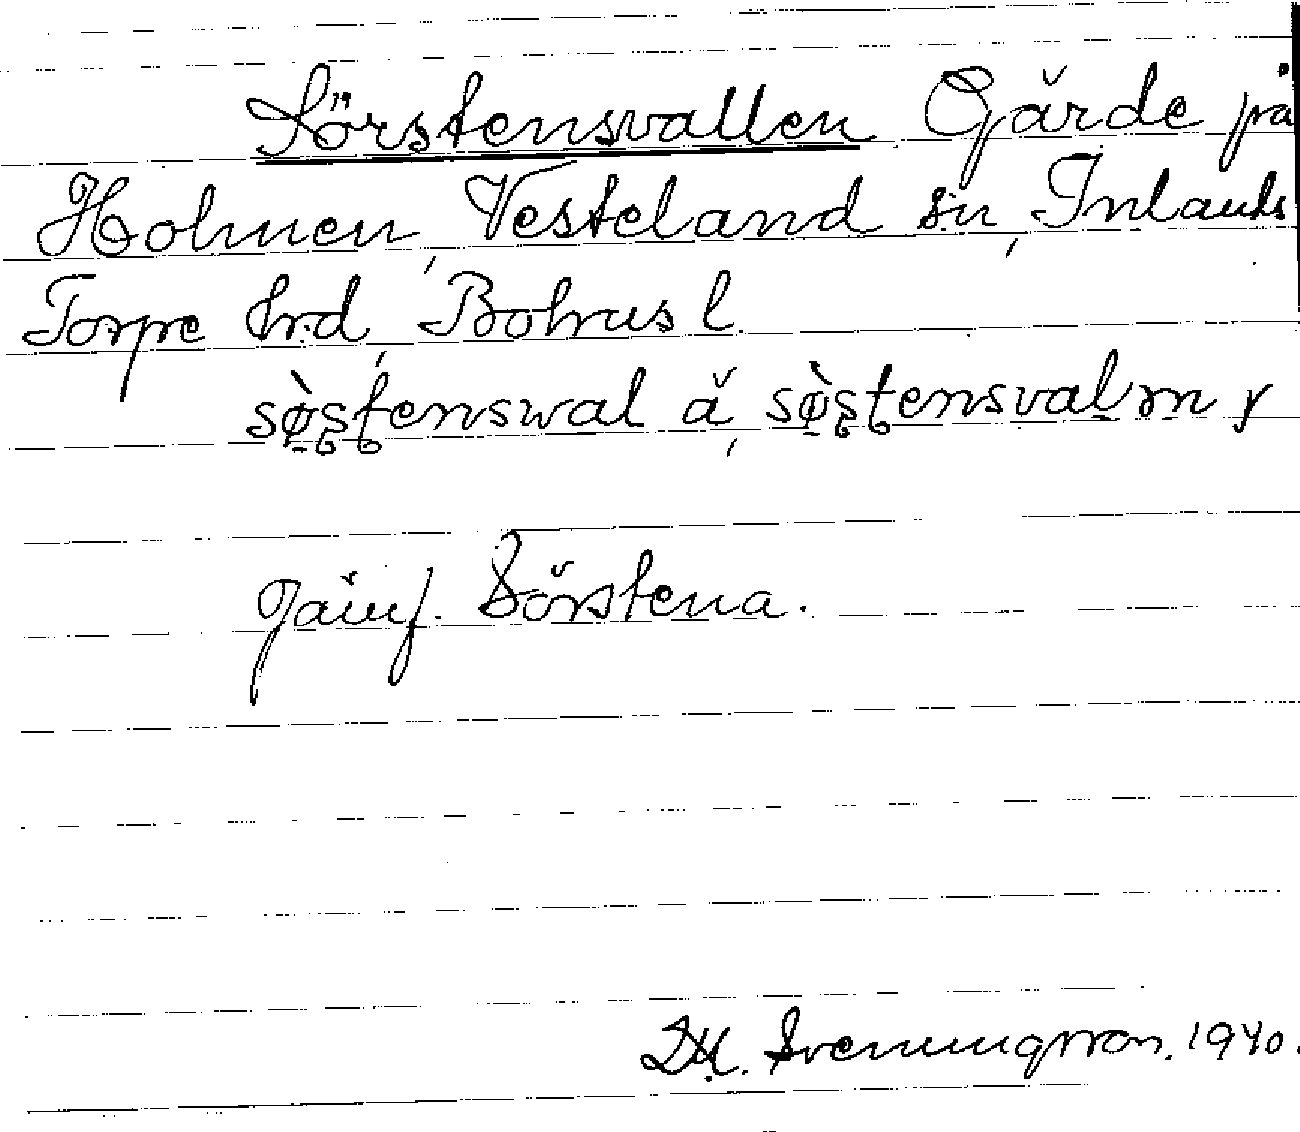 Sörstensvallen Gärde på
Holmen, Vesteland sn, Inlands
Torpe hrd, Bohus l.
sø̀ʂʈensval ă, sø̀ʂʈensvaln y
Jämf. Sörstena.
D.H. Svenungsson. 1940.